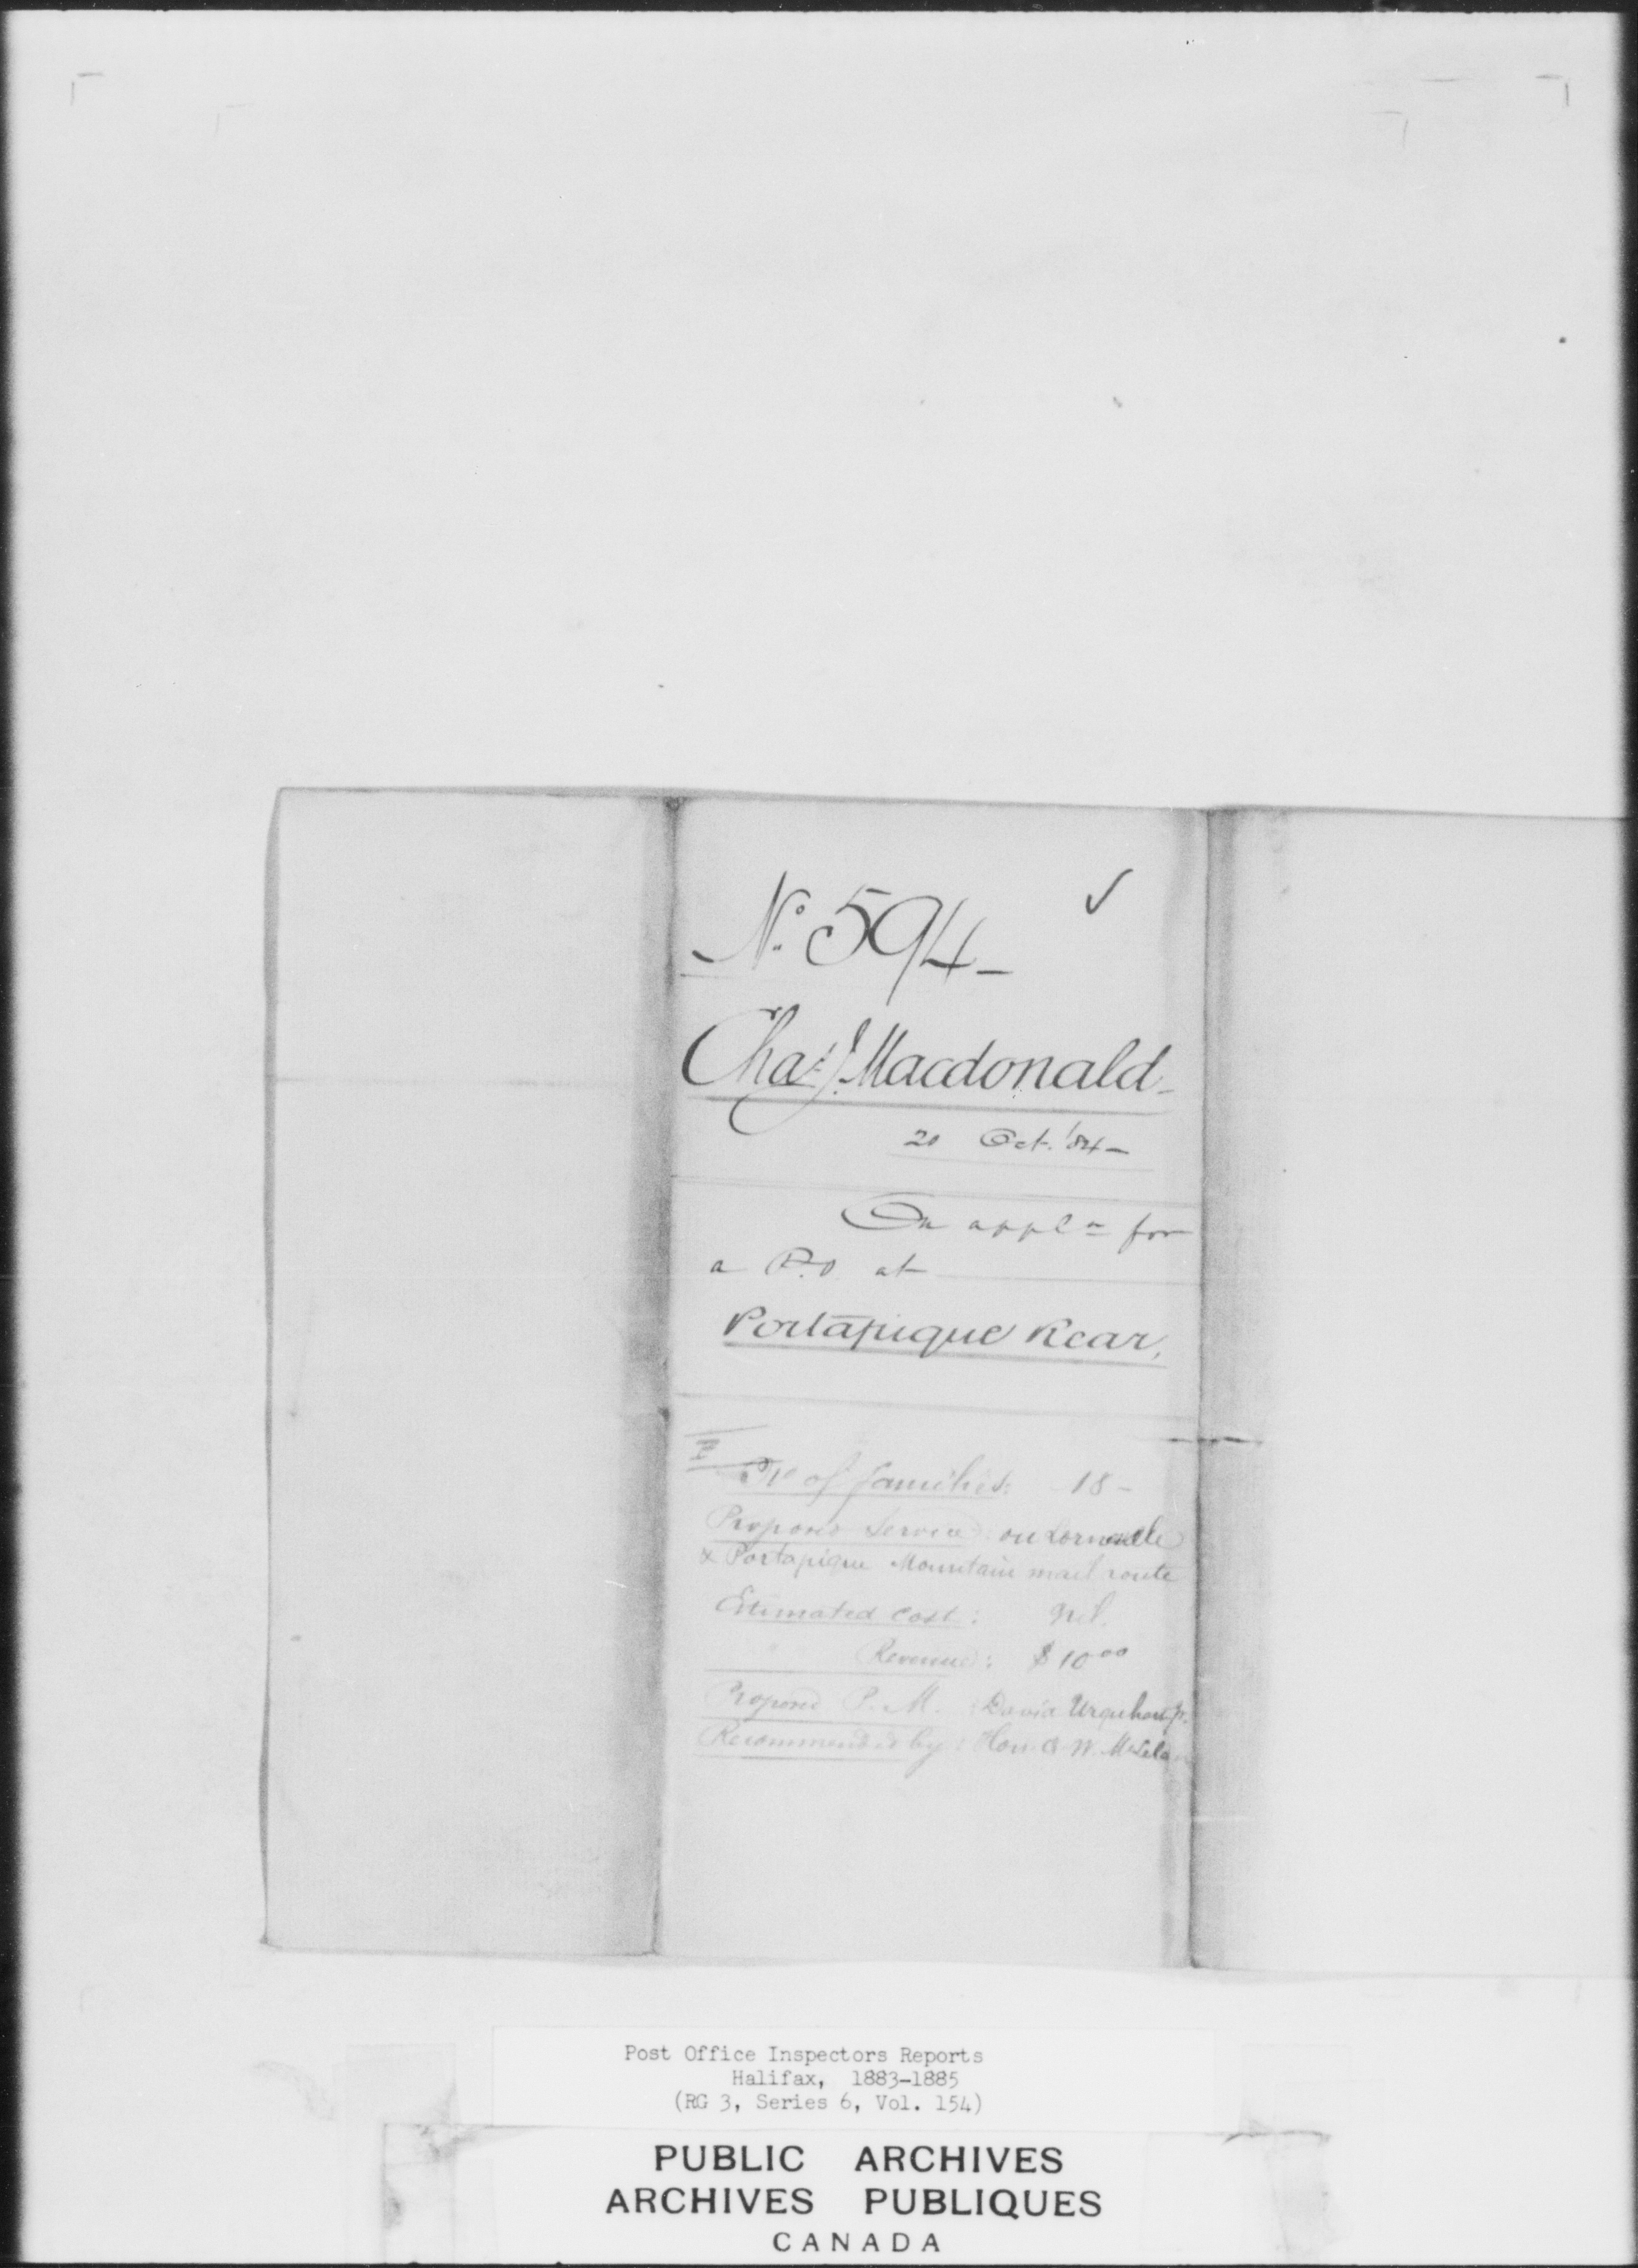 No. 594 - ✓
Chas. J. Macdonald -
20 Oct. '84 -
On appln for
a P.O at
Portapique Rear,
No of families: 18 -
Proposed Service: on Lornevale
& Portapique Mountain mail route
Estimated cost: Nil.
" Revenue: $10 00
Proposed P. M. : David Urquhart Jr.
Recommended by: Hon A W. McLelan
Post Office Inspectors Reports
Halifax, 1883-1885
(RG 3, Series 6, Vol. 154)
PUBLIC ARCHIVES
ARCHIVES PUBLIQUES
CANADA